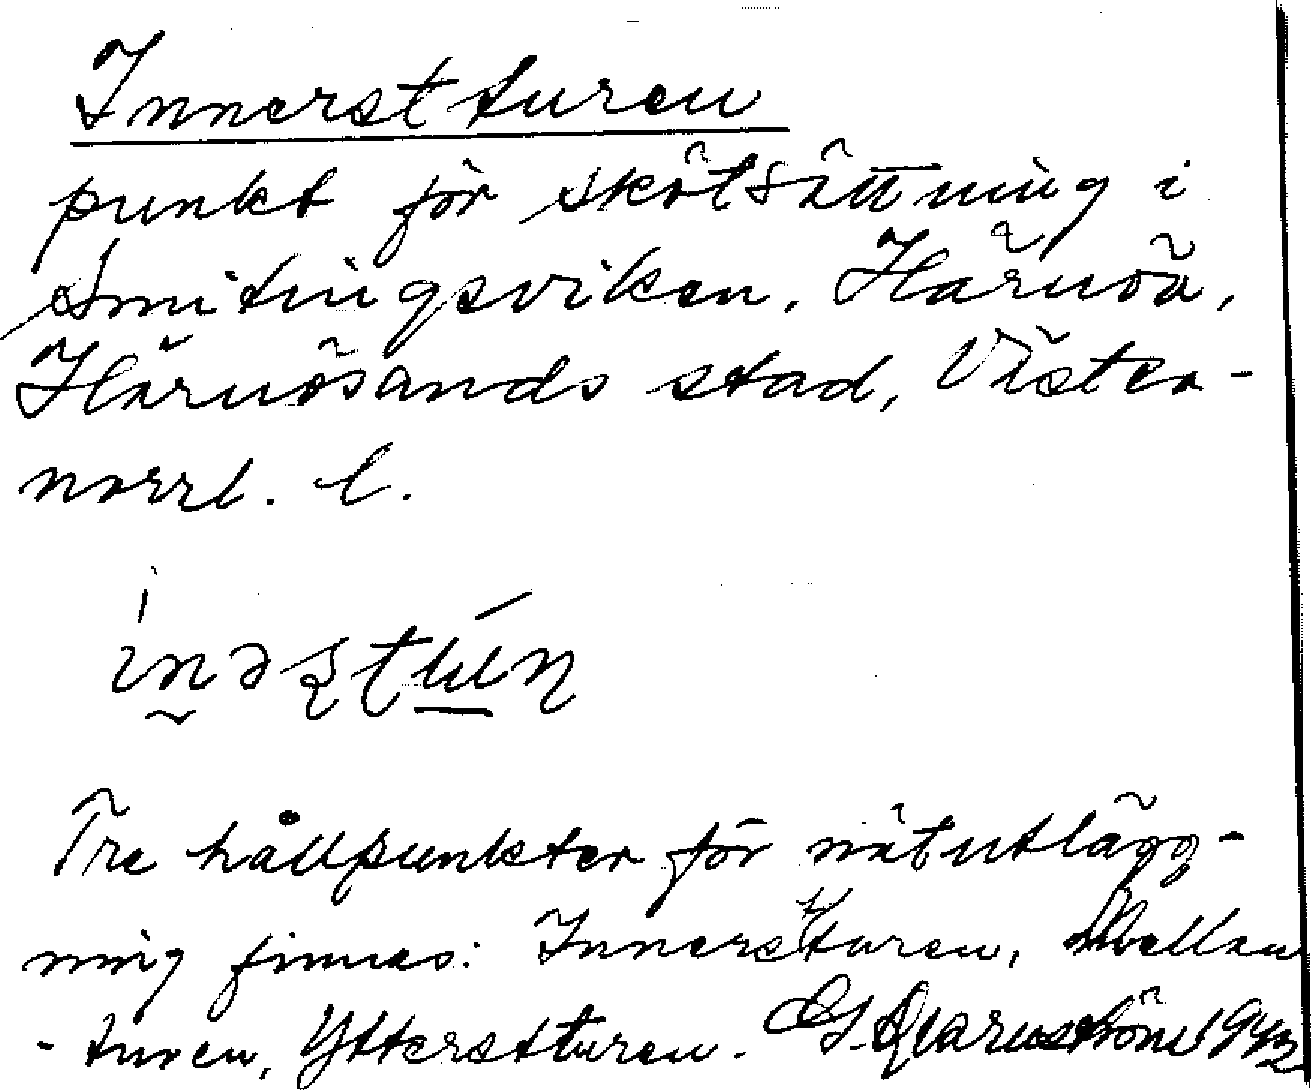 Innerstturen
punkt för skötsättning i
Smitingsviken, Härnön,
Härnösands stad, Väster-
norrl. l.
Tre hållpunkter för nätutlägg-
ning finnes: Innerstturen, Mellan
-turen, Ytterstturen. G. Qvarnström 1942